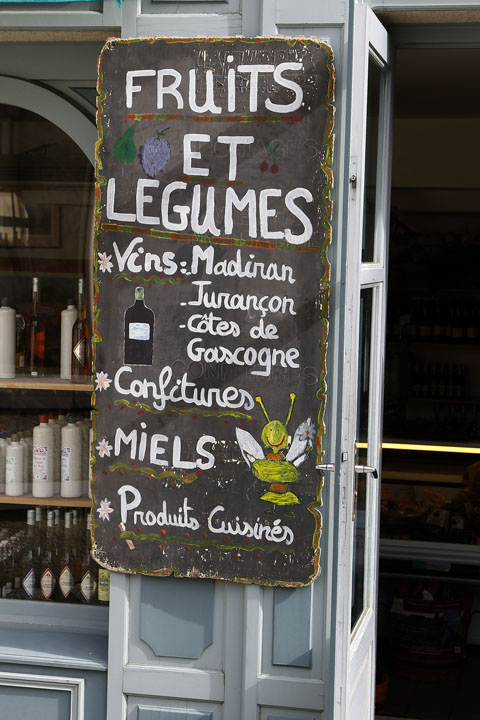 FRUITS
ET
LEGUMES
Vins: Madiran
- Jurançon
- Côtes de
Gascogne
Confitures
MIELS
Produits Cuisinés